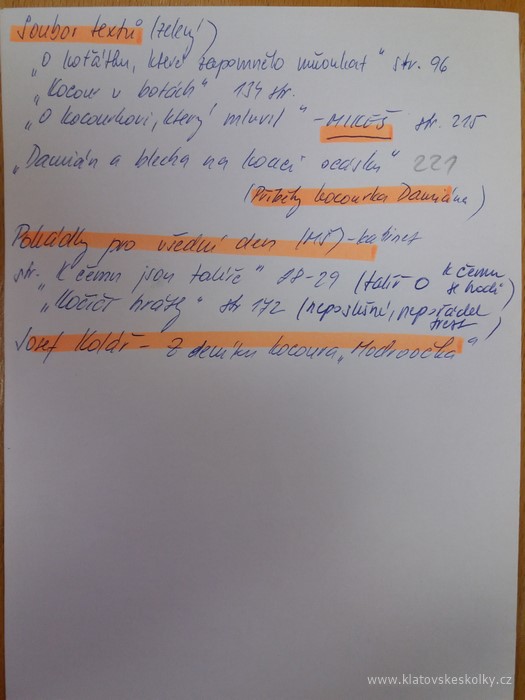 Soubor textů (zelený)
„O koťátku, které zapomnělo mňoukat" str. 96
„Kocour v botách" 134 str.
„O kocourkovi, který mluvil" - MIKEŠ str. 215
„Damián a blecha na kočičí ocásku" 221
(Příběhy kocourka Damiána)
Pohádky pro všední den (MŠ) - kabinet
str. „K čemu jsou talíře" 28-29 (talíř O k čemu se hodí)
„Kočičí hrátky" str 172 (neposlušní, nepořádek trest)
Josef Kolář - Z deníku kocoura „Modroočka"
www.klatovskeskolky.cz